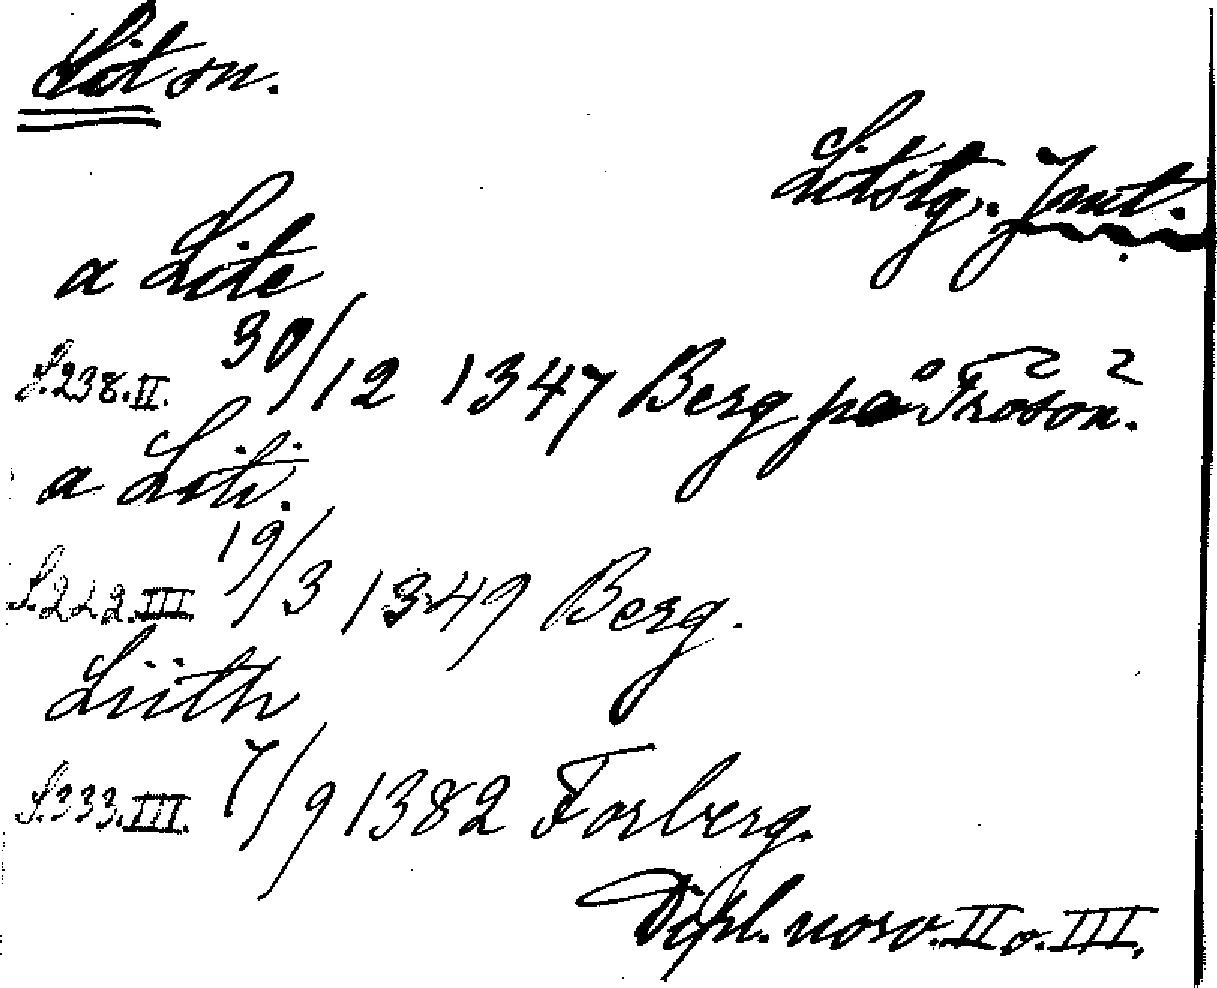 Lit sn.
Litstg. Jmt.
a Lite
S.238.II. 30/12 1347 Berg på Frösön.
a Liti.
S.222.III. 19/3 1349 Berg.
Liith
S.333.III. 7/9 1382 Forberg.
Dipl. norv. II o. III.